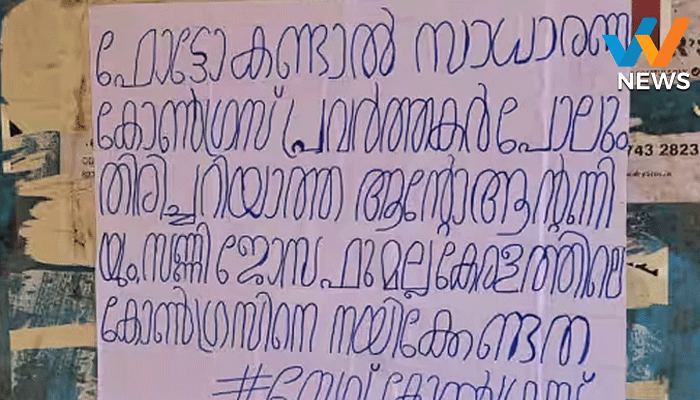 ഫോട്ടോ കണ്ടാൽ സാധാരണ
കോൺഗ്രസ് പ്രവർത്തകർ പോലും
തിരിച്ചറിയാത്ത ആന്റോ ആന്റണി
യും, സണ്ണി ജോസഫുമല്ല കേരളത്തിലെ
കോൺഗ്രസിനെ നയിക്കേണ്ടത്
#സേവ് കോൺഗ്രസ്
W NEWS
743 2823